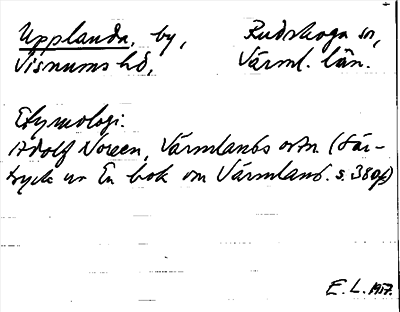 Upplanda, by, Rudskoga sn,
Visnums hd, Värml. län.
Etymologi:
Adolf Noreen, Värmlands ortn (Sär-
tryck ur En bok om Värmland. s. 38of)
E. L. 1957.